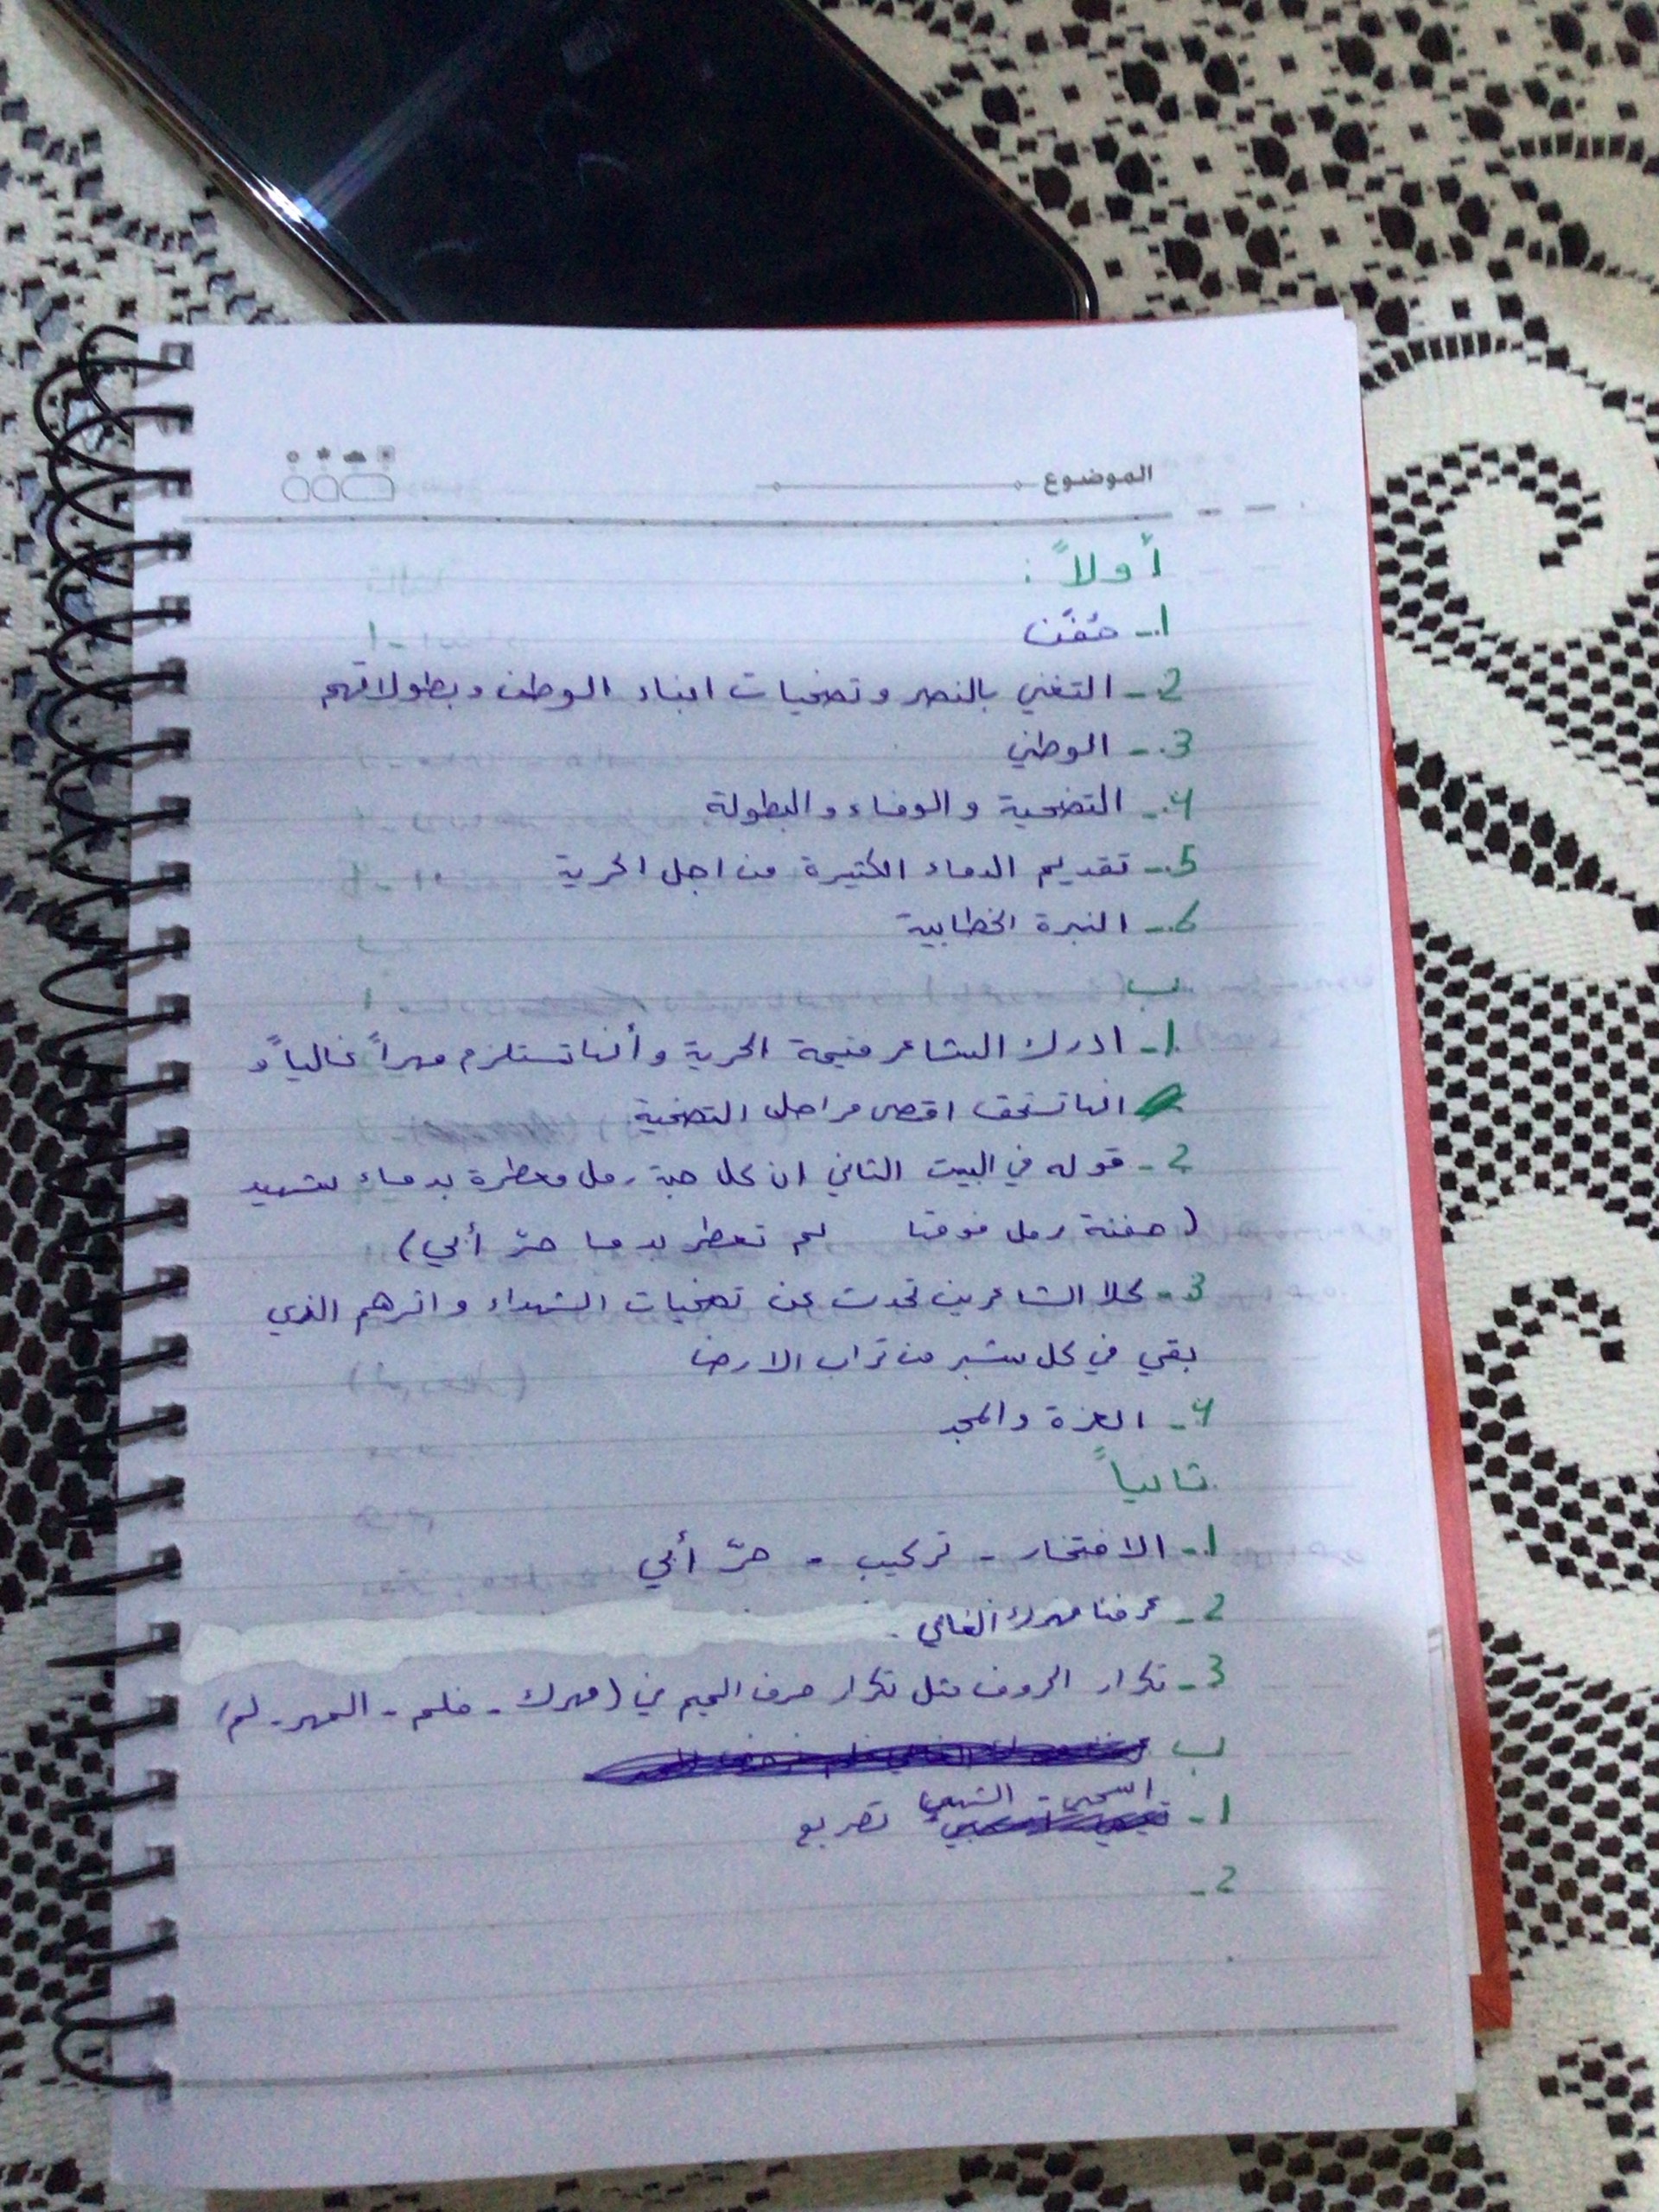 الموضوع
أولاً :
1- حُفَن
2- التغني بالنصر وتضحيات ابناء الوطن وبطولاتهم
3- الوطني
4- التضحية والوفاء والبطولة
5- تقديم الدماء الكثيرة من اجل الحرية
6- النبرة الخطابية
ب
1- ادرك الشاعر قيمة الحرية وأنها تستلزم مهراً غالياً و
انها تستحق اقصى مراحل التضحية
2- قوله في البيت الثاني ان كل حبة رمل معطرة بدماء شهيد
(حفنة رمل فوقنا لم تعطر بدما حرّ أبي)
3- كلا الشاعرين تحدث عن تضحيات الشهداء واثرهم الذي
بقي في كل شبر من تراب الارض
4- العزة والمجد
ثانياً
1- الافتخار - تركيب - حرّ أبي
2- عرفنا مهرك الغالي .
3- تكرار الحروف مثل تكرار حرف الميم في (مهرك - فلم - المهر - لم)
ب
1- تصريع
2-